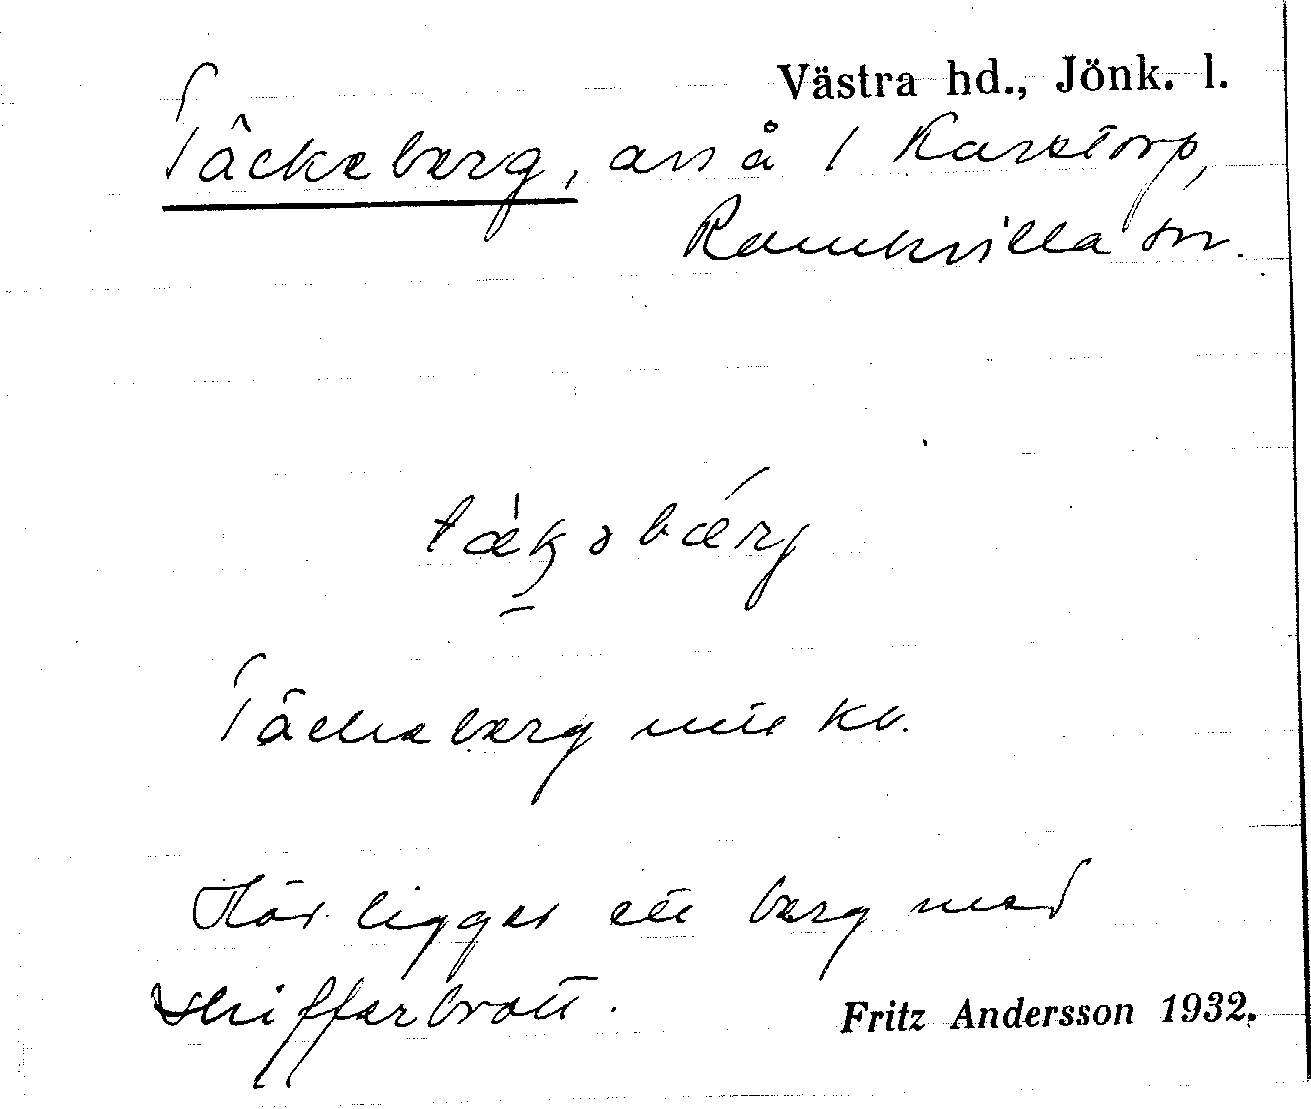 Västra hd., Jönk. l.
Täckeberg, avs å 1 Karstorp,
Ramkvilla sn.
Täckeberg mtl kb.
Här ligger ett berg med
skifferbrott.
Fritz Andersson 1932.